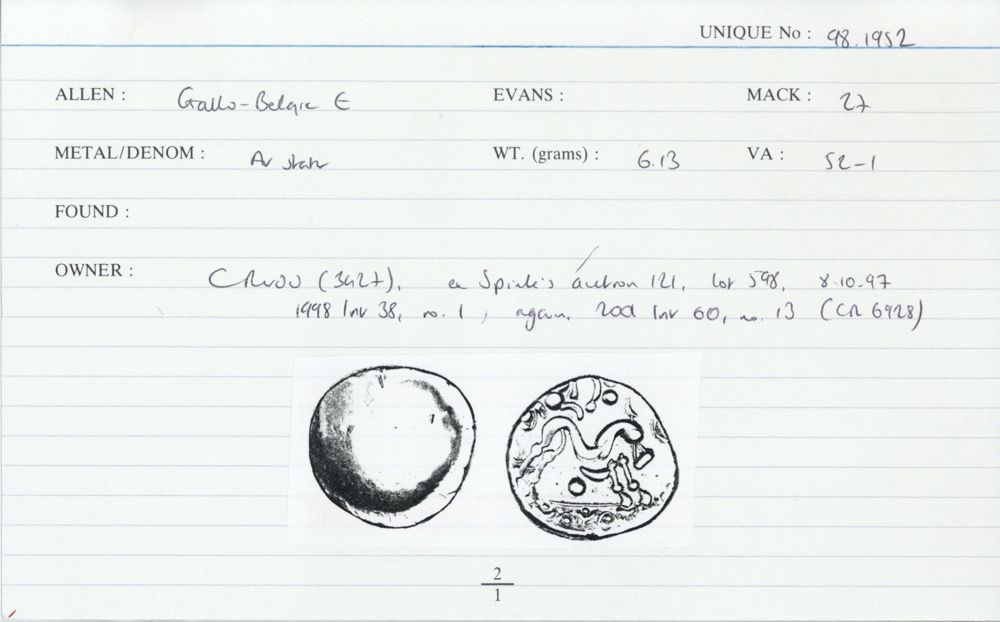 UNIQUE No : 98.1952
ALLEN : Gallo-Belgic E EVANS : MACK : 27
METAL/DENOM : Av stater WT. (grams) : 6.13 VA : 52-1
FOUND :
OWNER : (3427), ex Spink's auction 121, lot 598, 8.10.97
1998 Inv 38, no. 1, again, Inv 60, no. 13 (CR 6928)
2
1